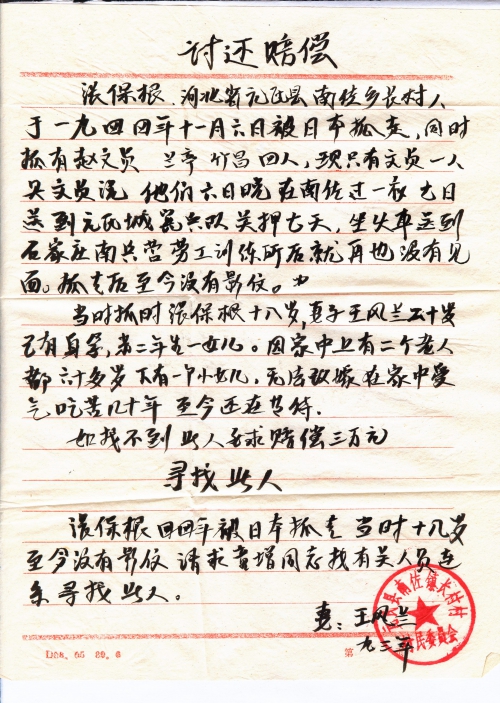 讨还赔偿
张保根、河北省元氏县南佐乡长村人
于一九四四年十一月六日被日本抓走,同时
抓有赵文员 兰亭 竹昌四人,现只有文员一人
文员说 他们六日晚在南佐过一夜 七日
送到元氏城宪兵队关押七天,坐火车送到
石家庄南兵营劳工训练所后就再也没有见
面。抓走后至今没有影信。
当时抓时张保根十八岁,妻子王风兰二十岁
已有身孕,第二年生一女儿。因家中上有二个老人
都六十多岁 下有一个小女儿,无法改嫁在家中受
气吃苦几十年 至今还在苦待.
如找不到此人要求赔偿三万元
寻找此人
张保根四四年被日本抓走 当时十八岁
至今没有影信 请求 增同志找有关人员连
系寻找此人。
妻:王风兰
九三年
县南佐镇 村村
民委员会
D08. 65 89. 6
第